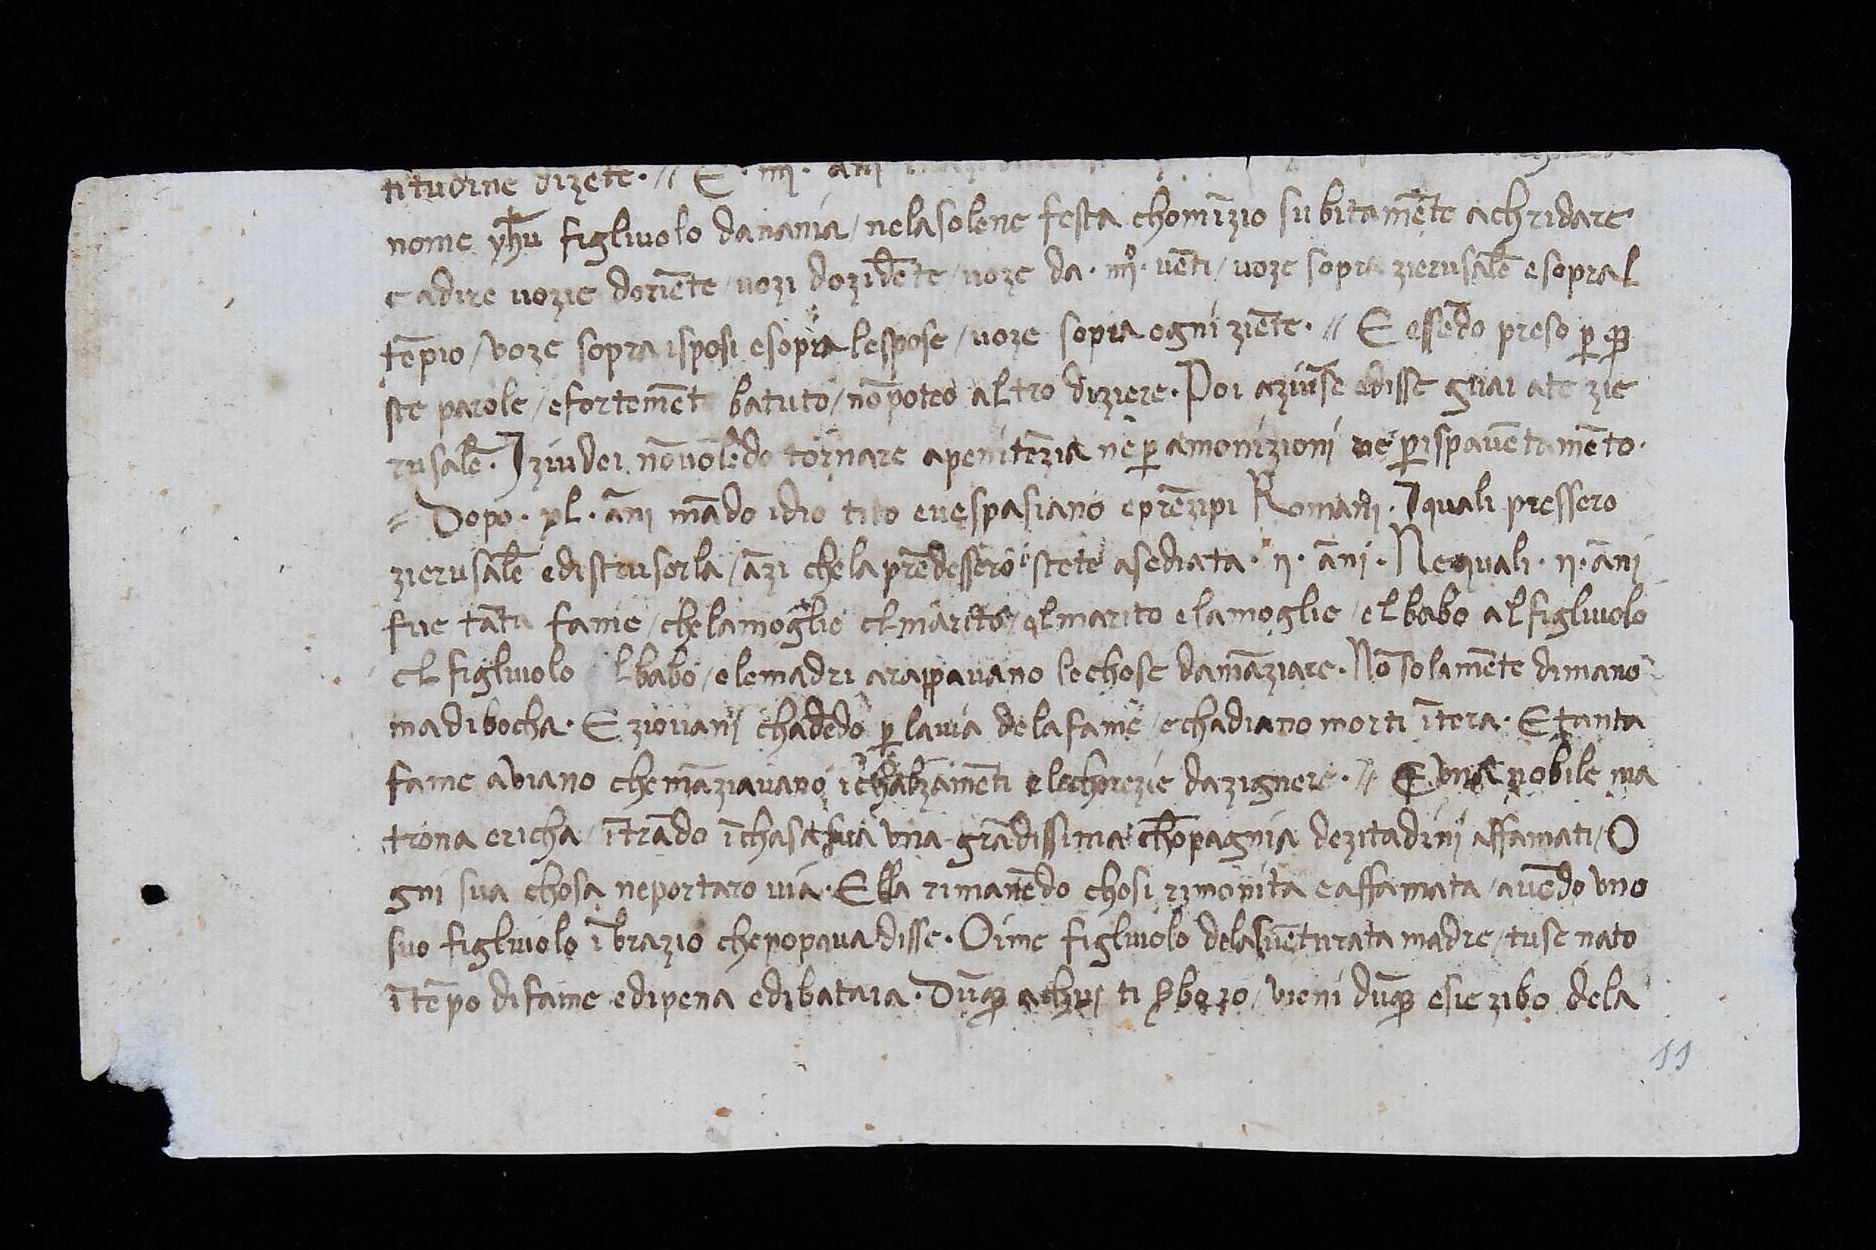 titudine dizete · // E · iiij · ani
nome yh̄u figliuolo danania / nelasolene festa chomīzio subitamēte achridare
e adire uozie doriēte / uozi dozidēte / uoze da · iiijº · uēti / uoze sopra zierusalē esopral
tēpio / voze sopra isposi esopra lespose / uoze sopra ogni ziēte · // E essēdo preso p̄ q̄
ste parole / efortemēt batuto / nōpoteo altro diziere · Poi aziūse edisse guai ate zie
rusalē · I ziudei nōvolēdo tornare apenitēzia ne p̄ amonizioni ne p̄ ispavētamēto ·
// Dopo · xl · āni mādo idio tito evespasiano eprēzipi Romani · I quali pressero
zierusalē edistrusorla / āzi chelaprēdessero stete asediata · ii · āni · Nequali · ii · āni
fue tāta fame / chelamoglie el marito / el marito elamoglie / el babo al figliuolo
el figliuolo lbabo / elemadri arappauano lechose damāziare · Nō solamēte dimano
madibocha · E ziouani chadēdo p̄ lauia delafame / echadiano morti ītera · E tanta
fame aviano chemāziauano i chalzamēti elechorezie dazignere · // E una nobile ma
trona ericha / ītrādo īchasa sua vna grādissima chōpagnia dezitadini affamati / O
gni sua chosa neportaro uia · Ella rimanēdo chosi rimonita eaffamata / auēdo vno
suo figliuolo ībrazio chepopaua disse · Oime figliuolo delasuēturata madre / tuse nato
ītēpo difame edipena edibataia · Dūq̄ achui ti serbero / vieni dūq̄ esie zibo dela
11